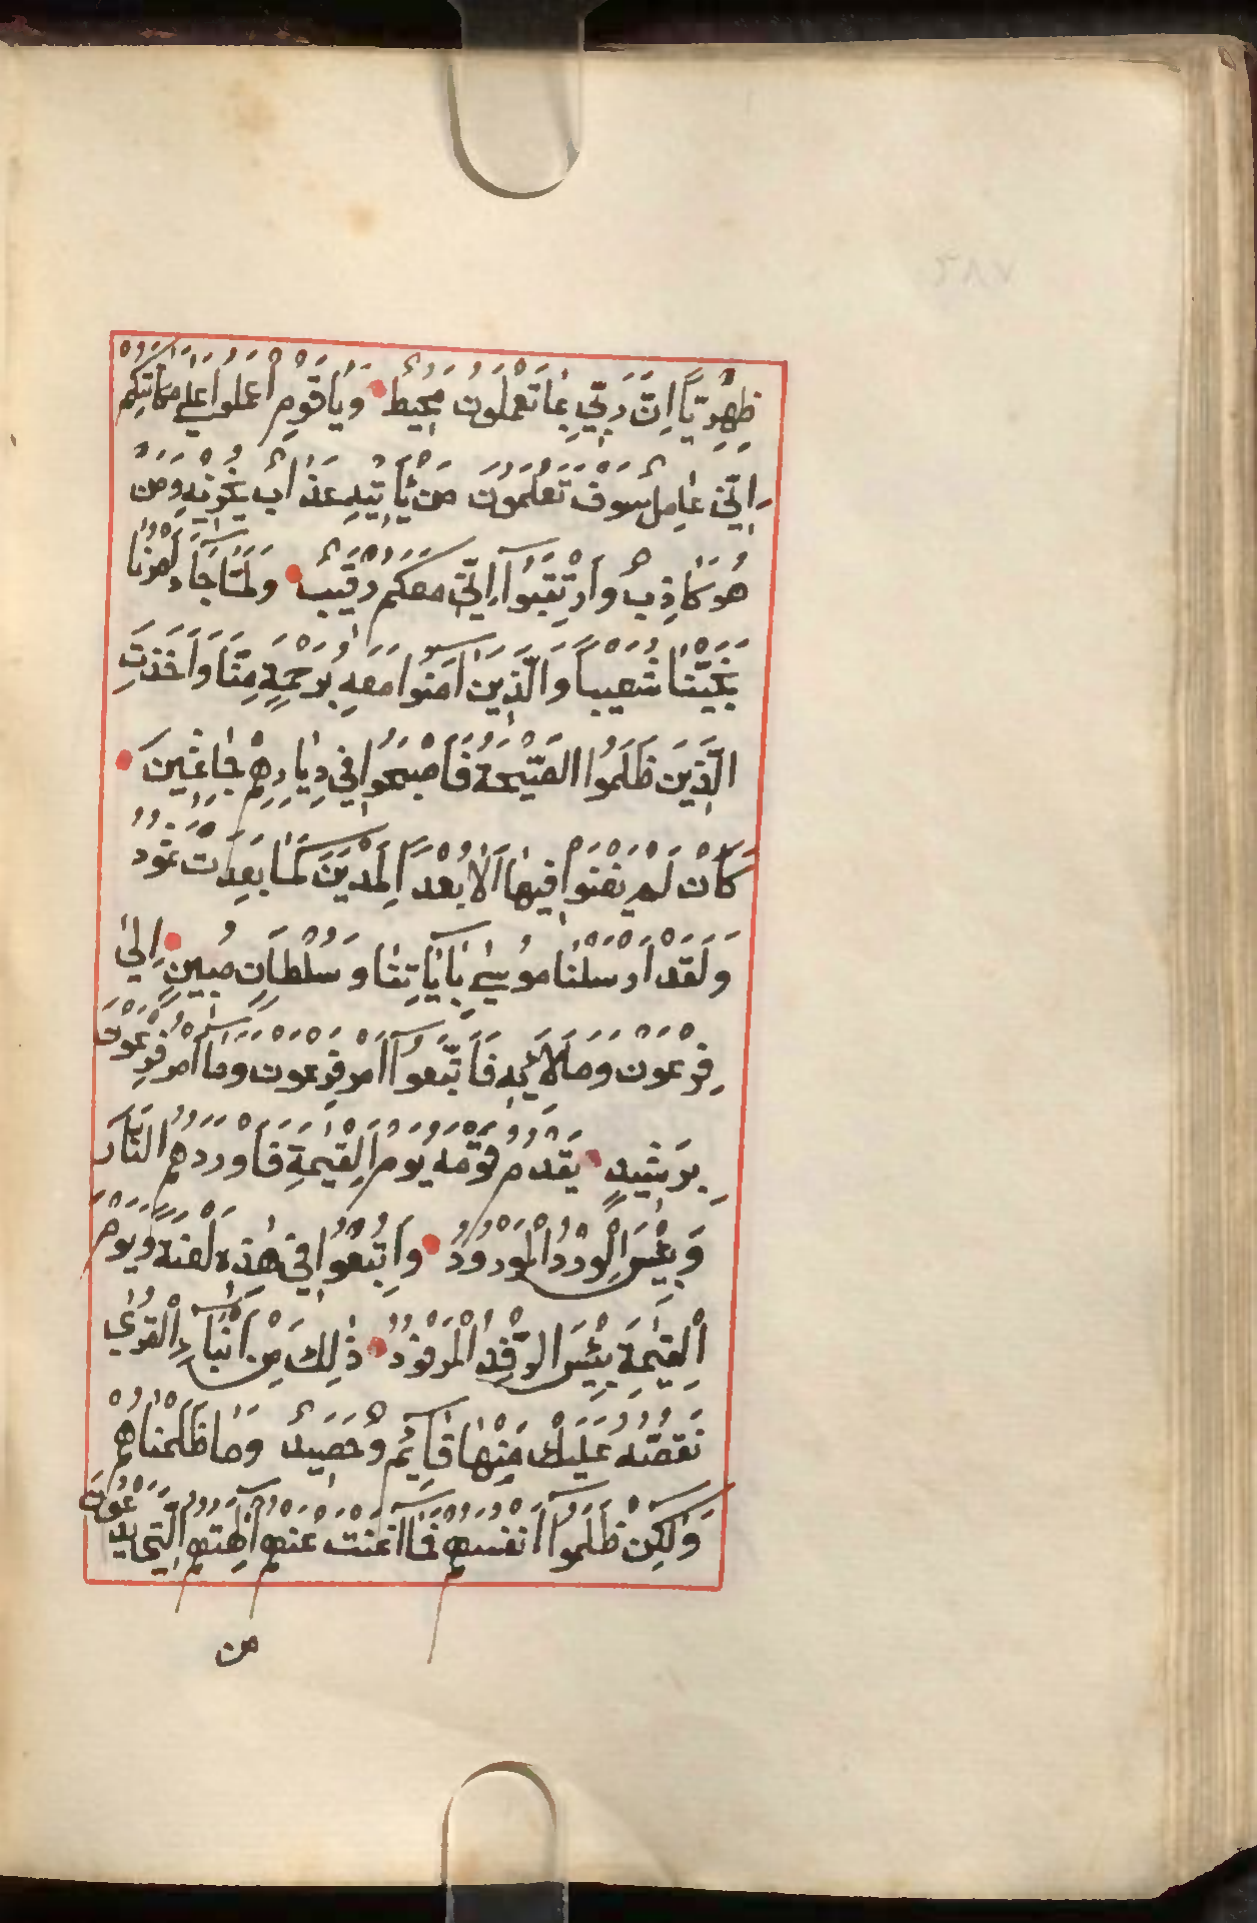 ظِهْرِيًّا اِنَّ رَبِّي بِمَا تَعْمَلُونَ مُحِيطٌ وَيَا قَوْمِ اعْمَلُوا عَلَى مَكَانَتِكُمْ
اِنِّي عَامِلٌ سَوْفَ تَعْلَمُونَ مَنْ يَأْتِيهِ عَذَابٌ يُخْزِيهِ وَمَنْ
هُوَ كَاذِبٌ وَارْتَقِبُوا اِنِّي مَعَكُمْ رَقِيبٌ وَلَمَّا جَاءَ اَمْرُنَا
نَجَّيْنَا شُعَيْبًا وَالَّذِينَ اٰمَنُوا مَعَهُ بِرَحْمَةٍ مِنَّا وَاَخَذَتِ
الَّذِينَ ظَلَمُوا الصَّيْحَةُ فَاَصْبَحُوا فِي دِيَارِهِمْ جَاثِمِينَ
كَاَنْ لَمْ يَغْنَوْا فِيهَا اَلَا بُعْدًا لِمَدْيَنَ كَمَا بَعِدَتْ ثَمُودُ
وَلَقَدْ اَرْسَلْنَا مُوسٰى بِاٰيَاتِنَا وَسُلْطَانٍ مُبِينٍ اِلٰى
فِرْعَوْنَ وَمَلَاۡئِهِ فَاتَّبَعُوا اَمْرَ فِرْعَوْنَ وَمَا اَمْرُ فِرْعَوْنَ
بِرَشِيدٍ يَقْدُمُ قَوْمَهُ يَوْمَ الْقِيٰمَةِ فَاَوْرَدَهُمُ النَّارَ
وَبِئْسَ الْوِرْدُ الْمَوْرُودُ وَاُتْبِعُوا فِي هٰذِهِ لَعْنَةً وَيَوْمَ
الْقِيٰمَةِ بِئْسَ الرِّفْدُ الْمَرْفُودُ ذٰلِكَ مِنْ اَنْبَاءِ الْقُرٰى
نَقُصُّهُ عَلَيْكَ مِنْهَا قَائِمٌ وَحَصِيدٌ وَمَا ظَلَمْنَاهُمْ
وَلٰكِنْ ظَلَمُوا اَنْفُسَهُمْ فَمَا اَغْنَتْ عَنْهُمْ اٰلِهَتُهُمُ الَّتِي يَدْعُونَ
من